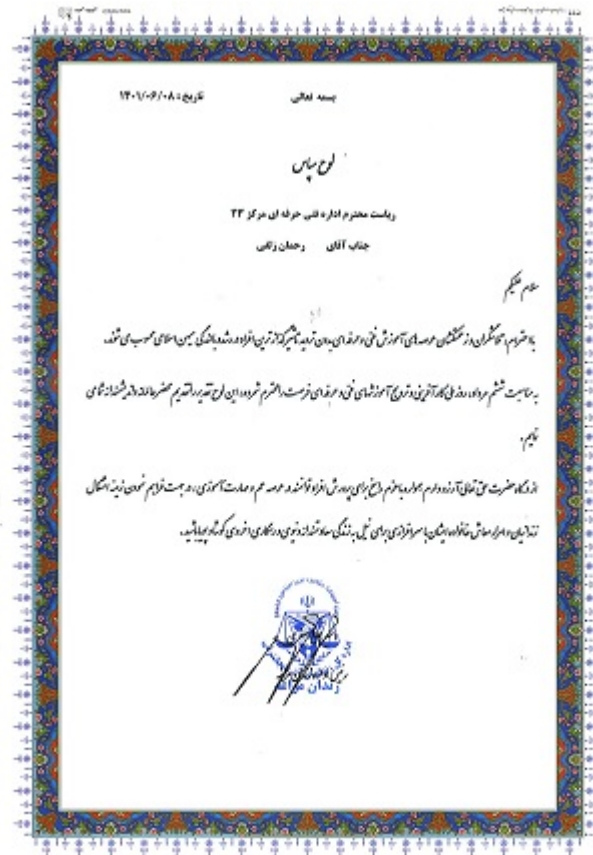 بسمه تعالی
تاریخ: ۱۴۰۱/۰۶/۰۸
لوح سپاس
ریاست محترم اداره فنی حرفه ای مرکز ۲۳
جناب آقای رحمان
سلام علیکم
با احترام، تلاشگران و زحمتکشان عرصه های آموزش فنی و حرفه ای بدون تردید تاثیرگذارترین افراد در رشد و بالندگی میهن اسلامی محسوب می شوند.
به مناسبت ششم مرداد، روز ملی کارآفرینی و ترویج آموزشهای فنی و حرفه ای فرصت را مغتنم شمرده، این لوح تقدیر را تقدیم محضر عالمانه و اندیشمندانه شما می
نمایم.
از درگاه حضرت حق تعالی آرزو دارم همواره با عزم راسخ برای پرورش افراد توانمند در عرصه علم و مهارت آموزی، در جهت فراهم نمودن زمینه اشتغال
زندانیان و امرار معاش خانواده ایشان با سرافرازی برای نیل به زندگی سعادتمندانه دنیوی و رستگاری اخروی کوشا و پویا باشید.
زندان